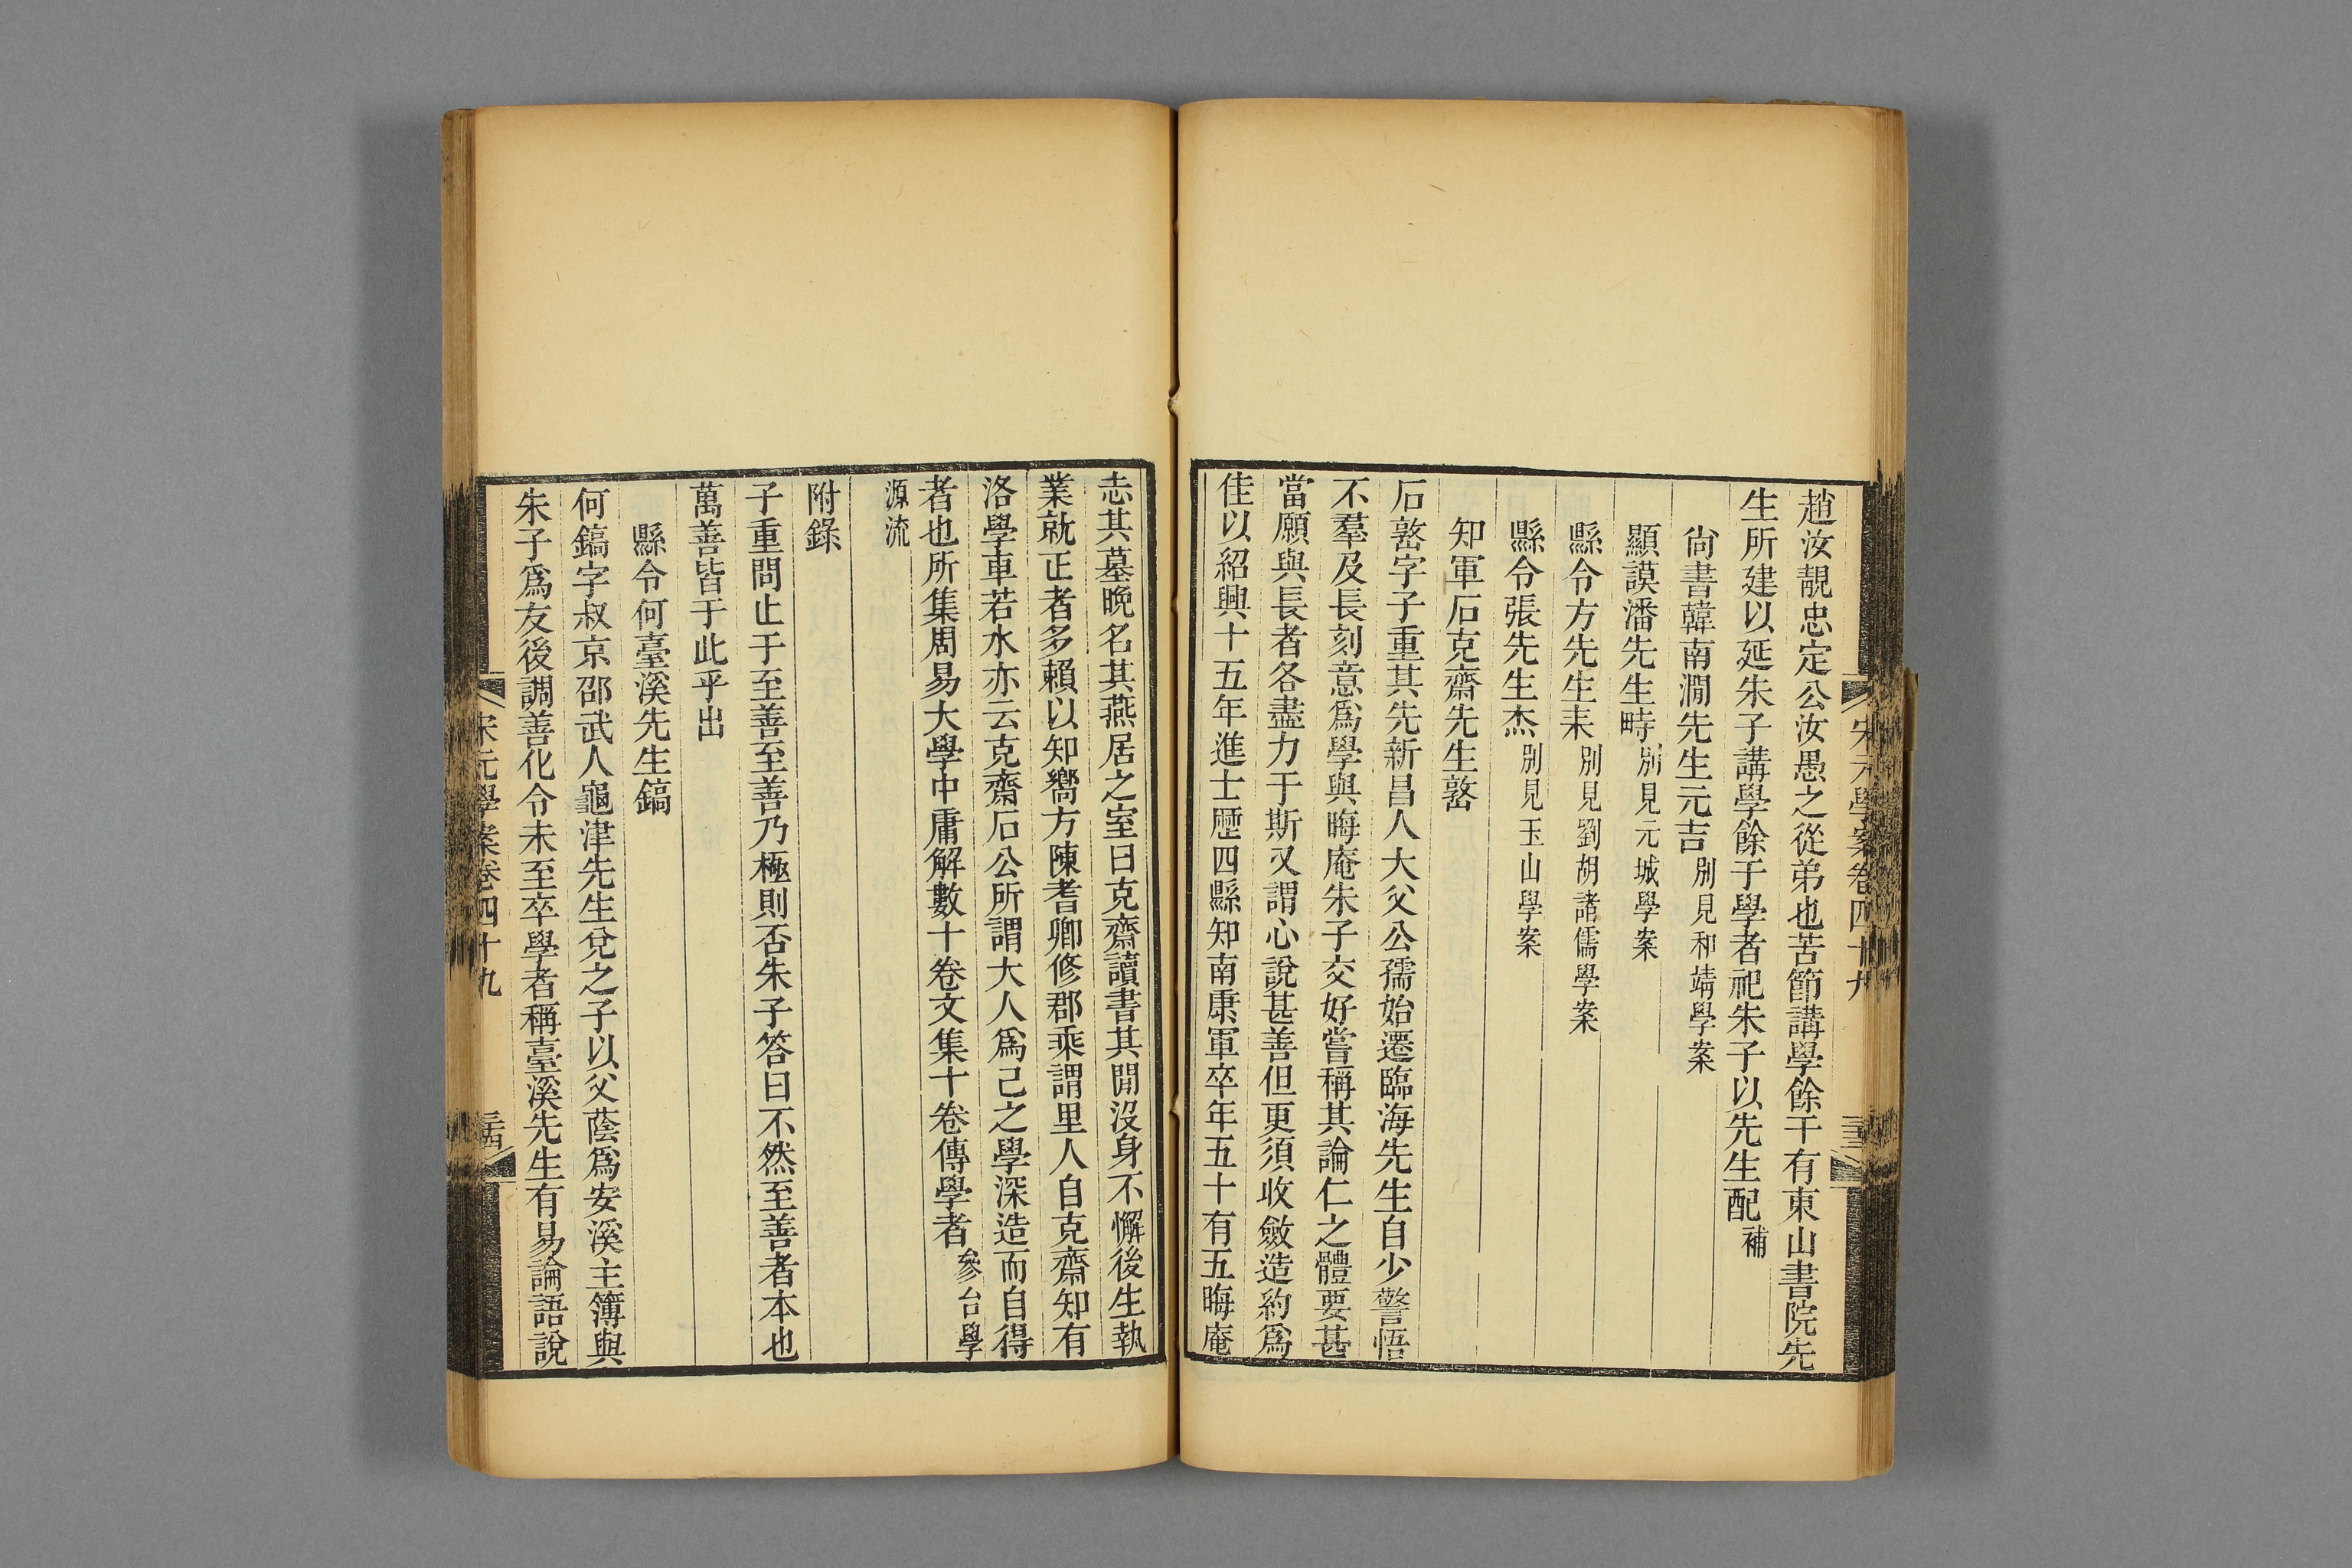 趙汝靚忠定公汝愚之從弟也苦節講學餘干有東山書院先
生所建以延朱子講學餘于學者祀朱子以先生配補
尙書韓南澗先生元吉別見和靖學案
顯謨潘先生畤別見元城學案
縣令方先生耒別見劉胡諸儒學案
縣令張先生杰別見玉山學案
知軍石克齋先生𡼖
石𡼖字子重其先新昌人大父公孺始遷臨海先生自少警悟
不羣及長刻意爲學與晦庵朱子交好嘗稱其論仁之體要甚
當願與長者各盡力于斯又謂心說甚善但更須收斂造約爲
佳以紹興十五年進士歷四縣知南康軍卒年五十有五晦庵
宋元學案卷四十九
志其墓晚名其燕居之室曰克齋讀書其閒沒身不懈後生執
業就正者多賴以知嚮方陳耆卿修郡乘謂里人自克齋知有
洛學車若水亦云克齋石公所謂大人爲己之學深造而自得
者也所集周易大學中庸解數十卷文集十卷傳學者參台學
源流
附錄
子重問止于至善至善乃極則否朱子答曰不然至善者本也
萬善皆于此乎出
縣令何臺溪先生鎬
何鎬字叔京邵武人龜津先生兌之子以父蔭爲安溪主簿與
朱子爲友後調善化令未至卒學者稱臺溪先生有易論語說
宋元學案卷四十九